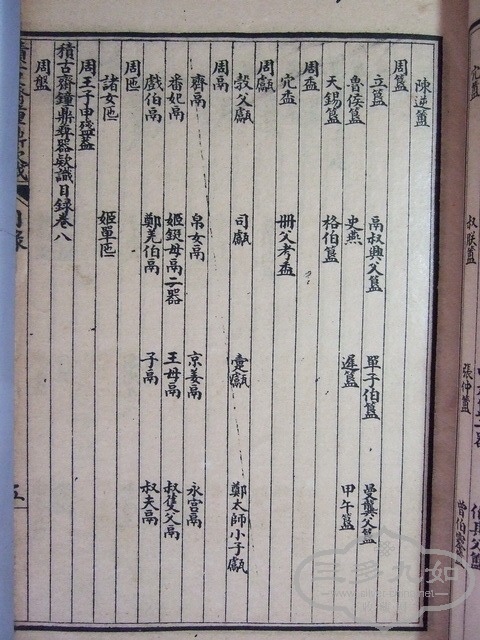 陳逆簠
周簋
立簋 鬲叔興父簋 單子伯簋 曼龔父簋
魯侯簋 史燕簋 遲簋 甲午簋
天錫簋 格伯簋
周盉
宂盉 冊父考盉
周甗
穀父甗 司甗 甗 鄭太師小子甗
周鬲
齊鬲 帛女鬲 京姜鬲 永宮鬲
番妃鬲 姬母鬲二器 王母鬲 叔隻父鬲
戲伯鬲 鄭羌伯鬲 子鬲 叔夫鬲
周匜
諸女匜 姬單匜
周王子申殘蓋
積古齋鐘鼎彝器款識目録卷八
周盤
目録
五
叔朕簠
張仲簠
三多九如